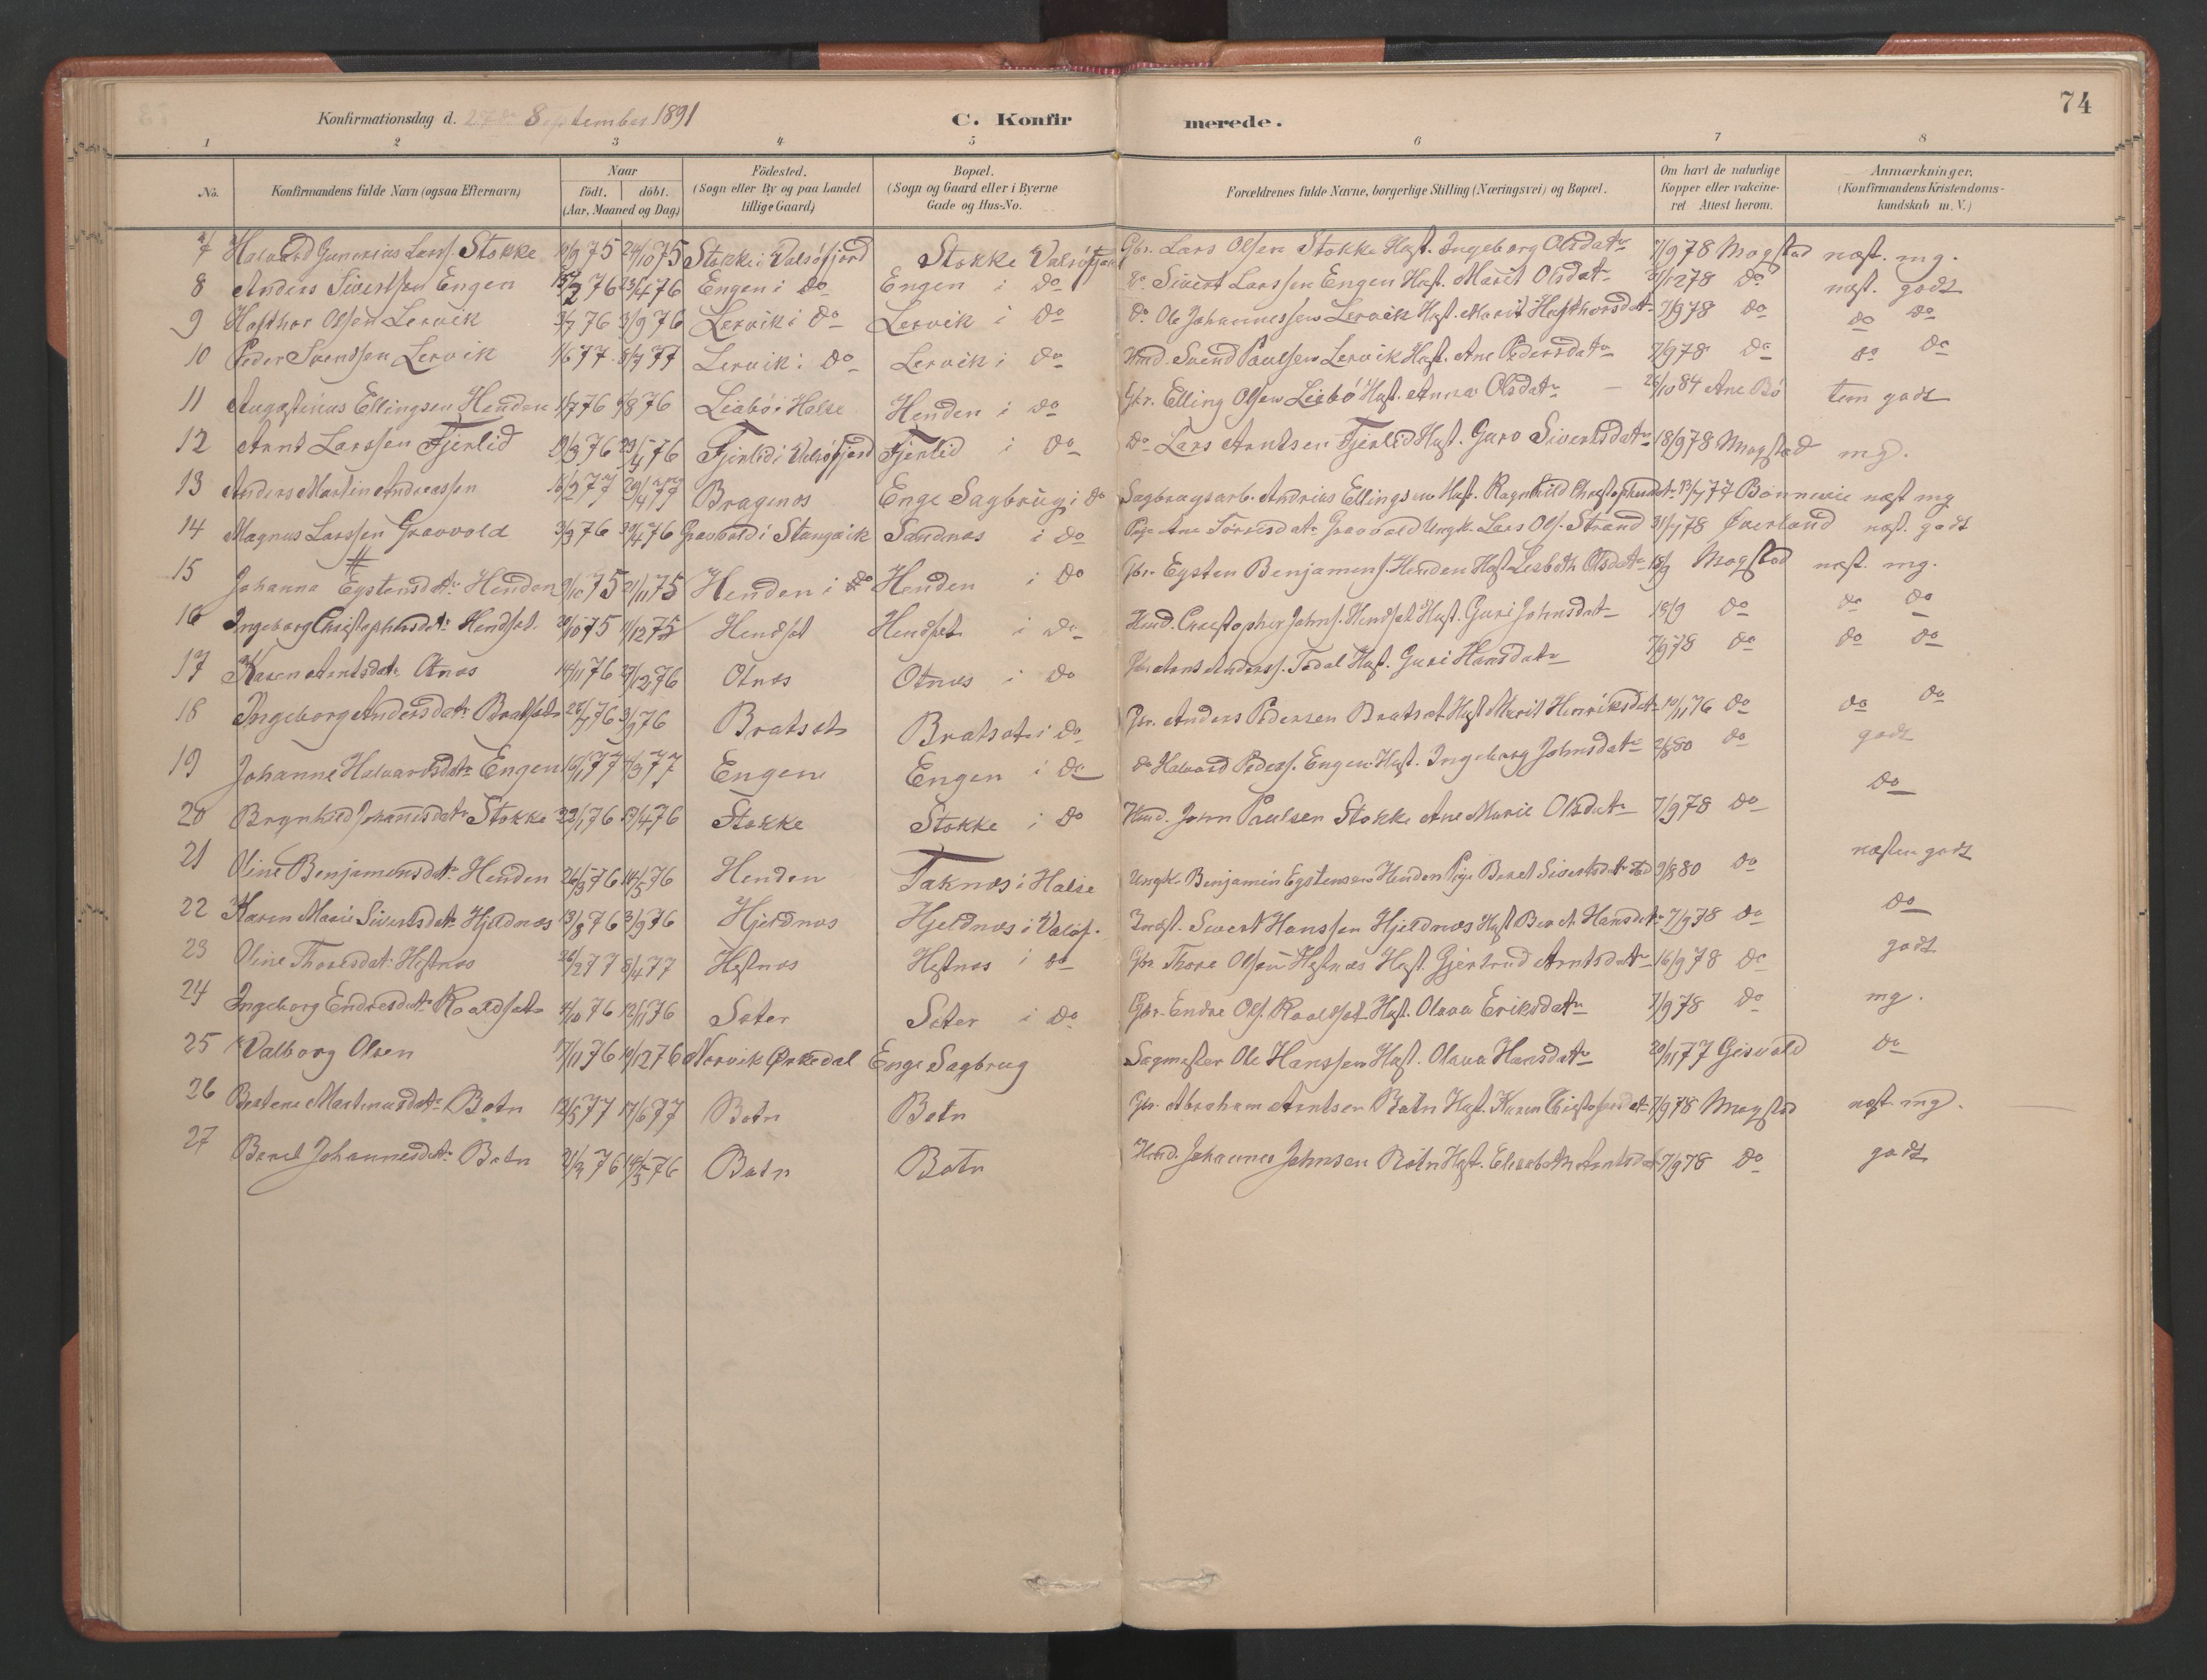 74
Konfirmationsdag d. 27de September 1891
C. Konfirmerede.
1 2 3 4 5 6 7 8
No. Konfirmandens fulde Navn (ogsaa Efternavn) Naar födt. döbt. (Aar, Maaned og Dag) Födested. (Sogn eller By og paa Landet tillige Gaard) Bopæl. (Sogn og Gaard eller i Byerne Gade og Hus-No. Forældrenes fulde Navne, borgerlige Stilling (Næringsvei) og Bopæl. Om havt de naturlige Kopper eller vakcineret Attest herom. Anmærkninger. (Konfirmandens Kristendomskundskab m. V.)
7 Halvard Gunnerius Larss. Stokke 10/9 75 24/10 75 Stokke i Valsöfjord Stokke Valsöfjord Gbr. Lars Olsen Stokke Hust. Ingeborg Olsdatr 7/9 78 Mogstad næst. mg.
8 Anders Sivertsen Engen 76 23/4 76 Engen i do Engen i do do Sivert Larssen Engen Hust. Marit Olsdatr 31/12 78 do næst. godt
9 Hafthor Olsen Lervik 3/7 76 3/9 76 Lervik i do Lervik i do do Ole Johannessen Lervik Hust. Marit Hafthorsdatr 7/9 78 do do do
10 Peder Svendsen Lervik 1/6 77 8/7 77 Lervik i do Lervik i do Hmd. Svend Paulsen Lervik Hust. Ane Pedersdatr 7/9 78 do do do
11 Augustinus Ellingsen Henden 1/7 76 6/8 76 Liabö i Halse Henden i do Gbr. Elling Olsen Liabö Hust. Anna Olsdatr 26/10 84 Ane Bö tem godt
12 Arnt Larssen Fjerlid 19/3 76 23/4 76 Fjerlid i Valsöfjord Fjerlid i do do Lars Arntsen Fjerlid Hust. Guro Sivertsdatr 18/9 78 Mogstad mg.
13 Anders Martin Andreassen 16/2 77 29/4 77 Bragenes Enge Sagbrug i do Sagbrugsarb. Andrias Ellingsen Hust. Ragnhild Christophersdatr 13/7 77 Bonnevie næst mg
14 Magnus Larssen Gravvold 3/3 76 30/4 76 Gravvold i Stangvik Sandnes i do Pige Ane Torresdatr Gravvold Ungk. Lars Ols. Strand 31/7 78 Överland næst. godt
15 Johanna Eystensdatr Henden 9/10 75 21/11 75 Henden i do Henden i do Gbr. Eysten Benjamens. Henden Hust Lisbeth Olsdatr 18/9 Mogstad næst. mg.
16 Ingeborg Christophersdatr Hendset. 20/10 75 1/12 75 Hendset Hendset i do Hmd. Christopher Johns. Hendset Hust. Guri Johnsdatr 18/9 do do do
17 Karen Arntsdatr Otnes 14/11 76 27/12 76 Otnes Otnes i do Gbr. Arnt Anderss. Todal Hust. Guri Hansdatr 7/9 78 do do do
18 Ingeborg Andersdatr Bratset 28/7 76 3/9 76 Bratset Bratset i do Gbr. Anders Pedersen Bratset Hust Marit Henriksdatr 10/11 76 do do do
19 Johanne Halvardsdatr Engen 16/1 77 4/3 77 Engen Engen i do do Halvard Peders. Engen Hust. Ingeborg Johnsdatr 2/8 80 do godt
20 Brynhild Johannesdatr Stokke 22/1 76 17/4 76 Stokke Stokke i do Hmd. John Paulsen Stokke Ane Marie Olsdatr 7/9 78 do do
21 Oline Benjamensdatr Henden 26/3 76 14/5 76 Henden Taknes i Halse Ungk. Benjamin Eystensen Henden Pige Beret Sivertsdatr 9/8 80 do næsten godt
22 Karen Marie Sivertsdatr Hjeldnes 13/8 76 3/9 76 Hjeldnes Hjeldnes i Valsf. Inest. Sivert Hanssen Hjeldnes Hust Beret Hansdatr 7/9 78 do do
23 Oline Thoresdatr Hestnes 26/2 77 8/4 77 Hestnes Hestnes i do Gbr. Thore Olsen Hestnes Hust. Gjertrud Arntsdatr 16/9 78 do godt
24 Ingeborg Endresdatr Roaldset 4/10 76 12/11 76 Seter Seter i do Gbr. Endre Ols. Roaldset Hust. Olava Eriksdatr 7/9 78 do mg.
25 Valborg Olsen 7/11 76 10/12 76 Norvik Örkedal Enge Sagbrug Sagmester Ole Hanssen Hust. Olava Hansdatr 20/11 77 Gisvold do
26 Beatene Martinusdatr Botn 12/5 77 17/6 77 Botn Botn Gbr. Abraham Arntsen Botn Hust. Karen Christofersdatr 7/9 78 Mogstad næst mg.
27 Beret Johannesdatr Botn 21/3 76 14/5 76 Botn Botn Hmd. Johannes Johnsen Botn Hust. Elisabeth Arntsdatr 7/9 78 do godt